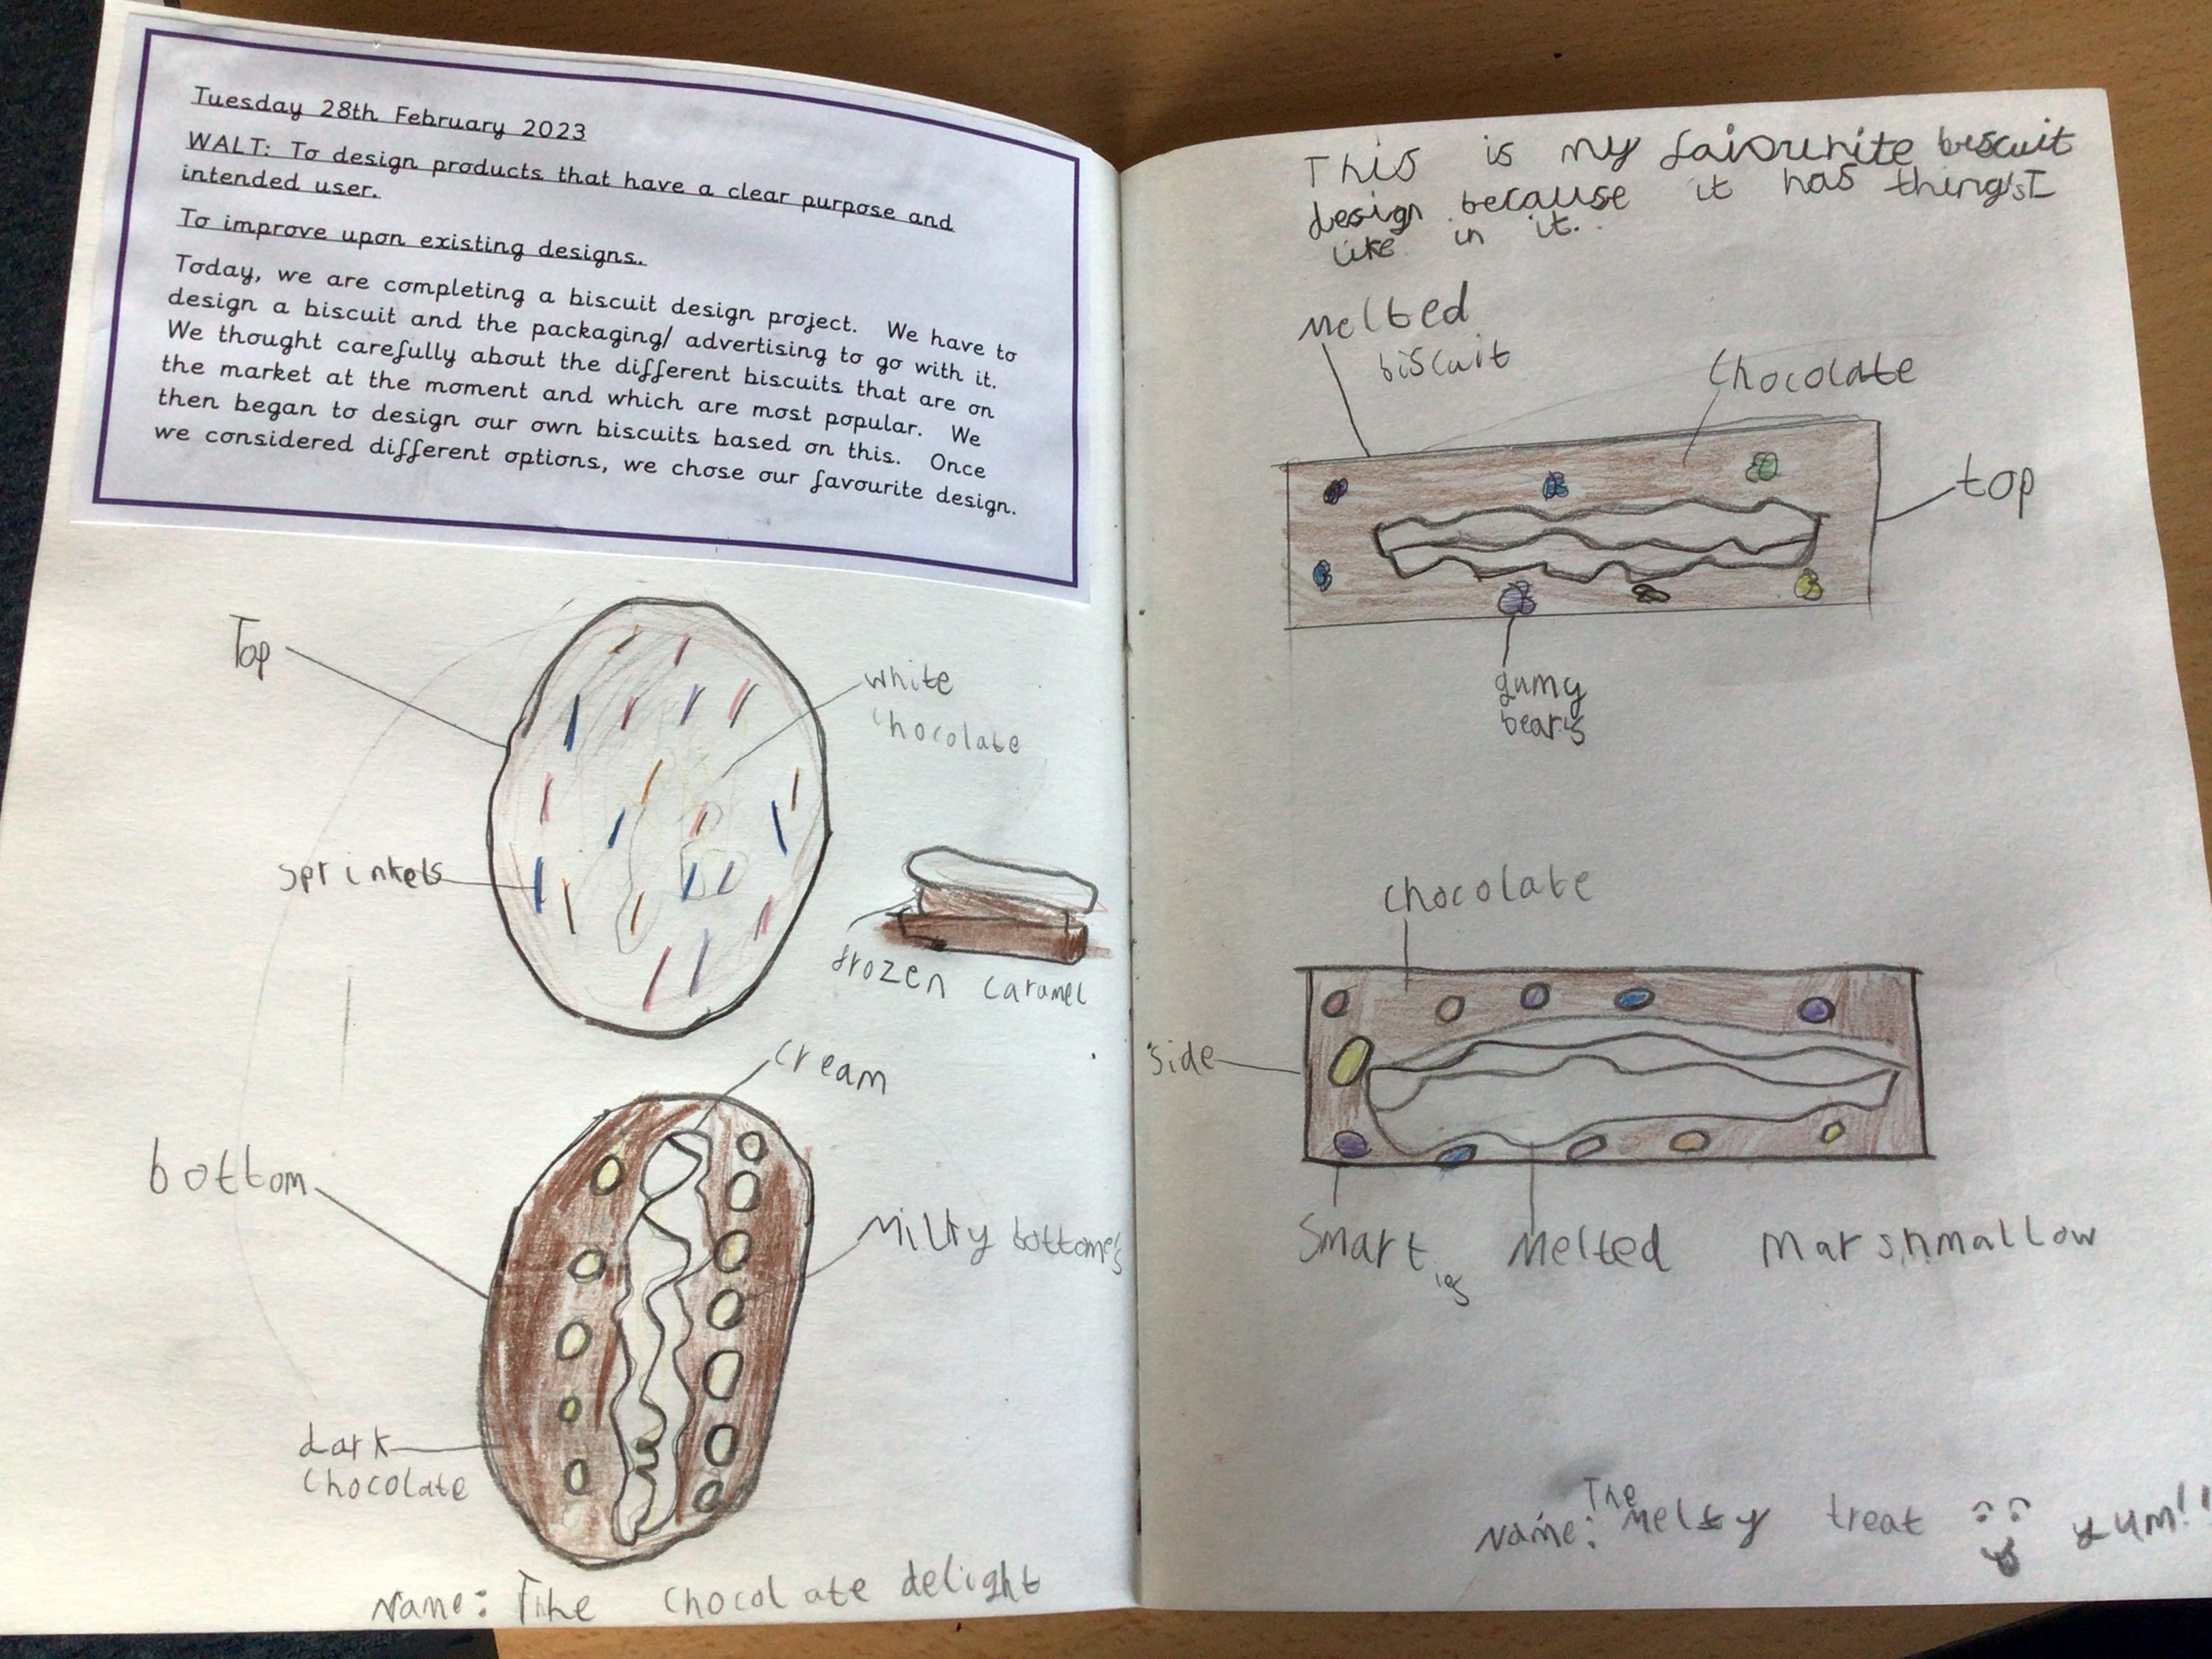 Tuesday 28th February 2023
WALT: To design products that have a clear purpose and
intended user.
To improve upon existing designs.
Today, we are completing a biscuit design project. We have to
design a biscuit and the packaging/ advertising to go with it.
We thought carefully about the different biscuits that are on
the market at the moment and which are most popular. We
then began to design our own biscuits based on this. Once
we considered different options, we chose our favourite design.
Top
white
chocolate
sprinkels
frozen caramel
cream
bottom
Milky bottome's
dark
chocolate
Name: The chocolate delight
This is my faiourite biscuit
design because it has thing's I
like in it.
Melted
biscuit
chocolate
top
gumy
bears
chocolate
side
Smart
ies
Melted Marshmallow
Name: The Melty treat yum!!